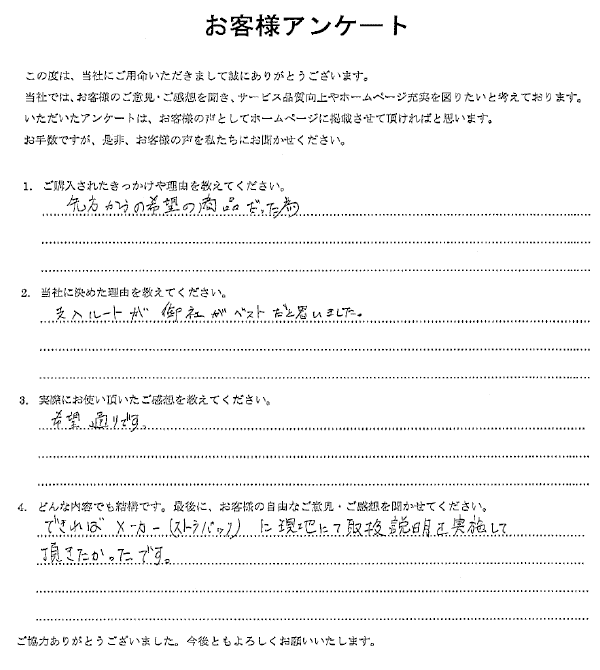 お客様アンケート
この度は、当社にご用命いただきまして誠にありがとうございます。
当社では、お客様のご意見・ご感想を聞き、サービス品質向上やホームページ充実を図りたいと考えております。
いただいたアンケートは、お客様の声としてホームページに掲載させて頂ければと思います。
お手数ですが、是非、お客様の声を私たちにお聞かせください。
1. ご購入されたきっかけや理由を教えてください。
先方からの希望の商品だった為
2. 当社に決めた理由を教えてください。
ルートが 御社がベストだと思いました。
3. 実際にお使い頂いたご感想を教えてください。
希望通りです。
4. どんな内容でも結構です。最後に、お客様の自由なご意見・ご感想を聞かせてください。
できればメーカー(ストラパック)に現地にて取扱説明を実施して
頂きたかったです。
ご協力ありがとうございました。今後ともよろしくお願いいたします。